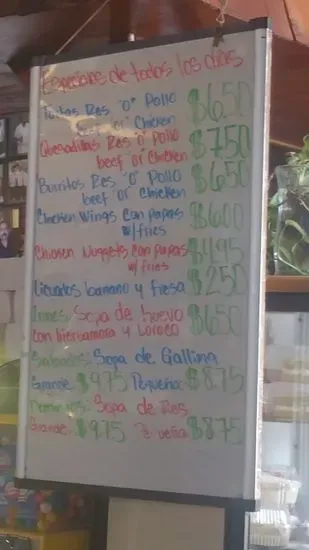 Especiales de todos los dias
Tortas Res "O" Pollo $6.50
beef or Chicken
Quesadillas Res "O" Pollo $7.50
beef or Chicken
Burritos Res "O" Pollo $6.50
beef or Chicken
Chicken Wings Con Papas $6.00
w/fries
Chicken Nuggets Con Papas $4.95
w/ fries
Licuados banano y fresa $2.50
Lunes: Sopa de huevo $6.50
con hierbamora y Loroco
Sabados: Sopa de Gallina
Grande $9.75 Pequeña: $8.75
Domingos: Sopa de Res
Grande: $9.75 Pequeña $8.75